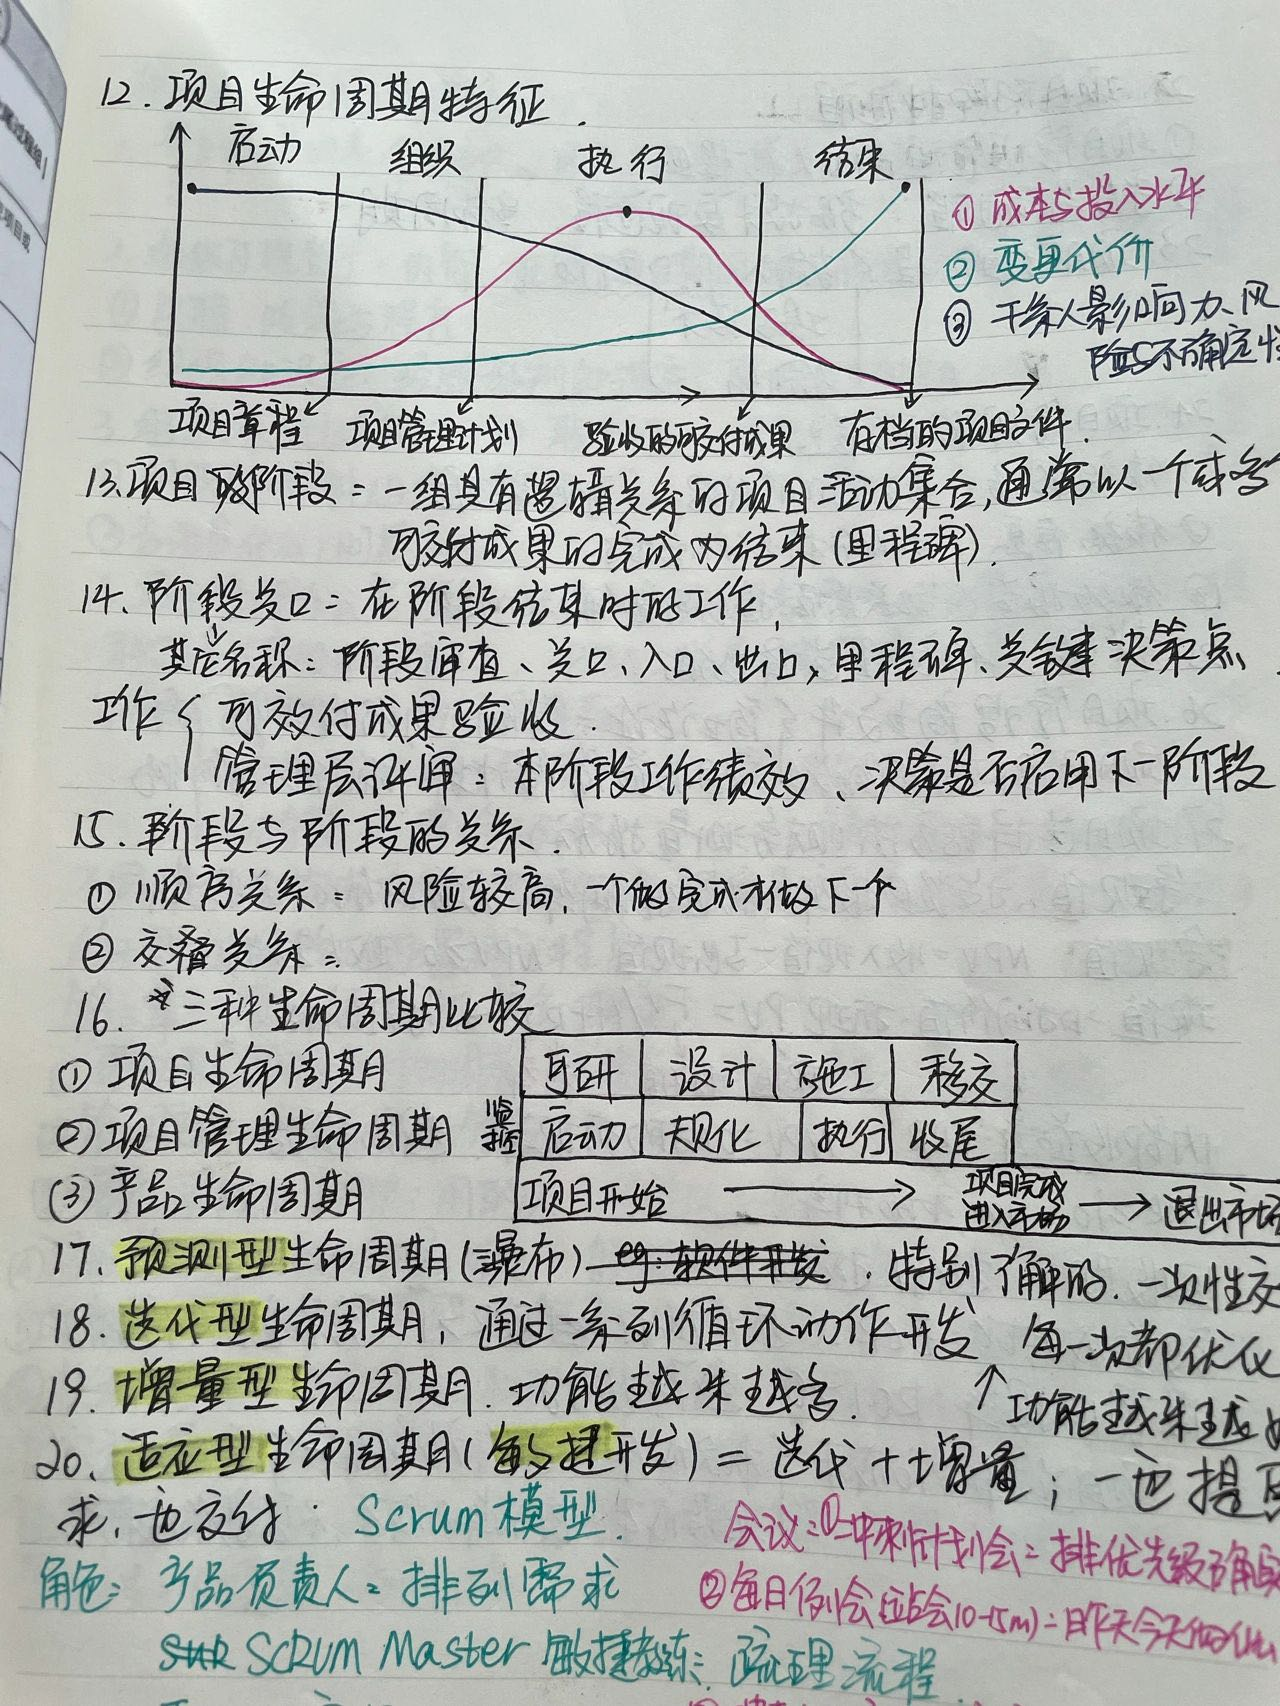 12. 项目生命周期特征.
启动 组织 执行 结束
① 成本与投入水平
② 变更代价
③ 干系人影响力、风
险与不确定性
项目章程 项目管理计划 验收的可交付成果 存档的项目文件.
13.项目阶段: 一组具有逻辑关系的项目活动集合,通常以一个或多
可交付成果的完成为结束(里程碑).
14. 阶段关口: 在阶段结束时的工作.
其它名称: 阶段审查、关口、入口、出口,里程碑、关键决策点.
工作 { 可交付成果验收.
管理层评审: 本阶段工作绩效、决策是否启用下一阶段
15. 阶段与阶段的关系.
① 顺序关系: 风险较高, 一个做完成才做下一个
② 交叠关系:
16. 三种生命周期比较
① 项目生命周期 可研 设计 施工 移交
② 项目管理生命周期 监控 启动 规化 执行 收尾
③ 产品生命周期 项目开始 → 项目完成 进入市场 → 退出市场
17. 预测型生命周期(瀑布) eg: 软件开发. 特别了解的. 一次性交
18. 迭代型生命周期, 通过一系列循环动作开发 每一次都优化
19. 增量型生命周期. 功能越来越多. ↑功能越来越
20. 适应型生命周期(敏捷开发) = 迭代 + 增量; 一边提
求, 边交付. Scrum模型.
会议: ① 冲刺计划会: 排优先级
角色: 产品负责人: 排列需求
② 每日例会(站会10-15m): 昨天今天
SCRUM Master 敏捷教练: 疏理流程